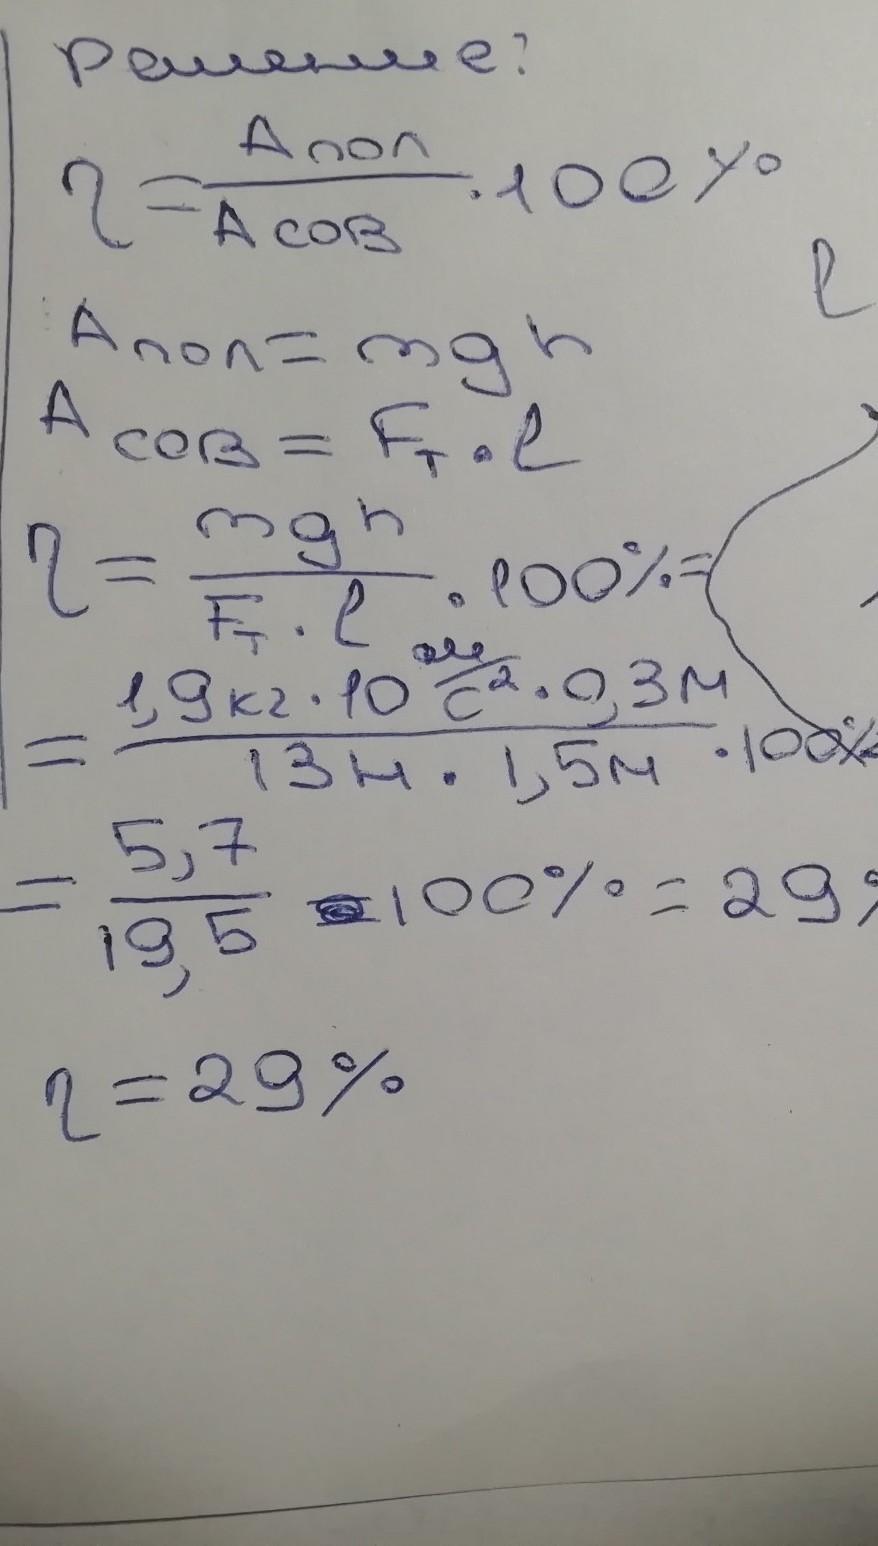 Решение:
η = Апол / Асов · 100%
l
Апол = mgh
Асов = Fт · l
η = mgh / Fт · l · 100% =
= 1,9кг · 10 м/с² · 0,3м / 13Н · 1,5м · 100%
= 5,7 / 19,5 · 100% = 29%
η = 29%